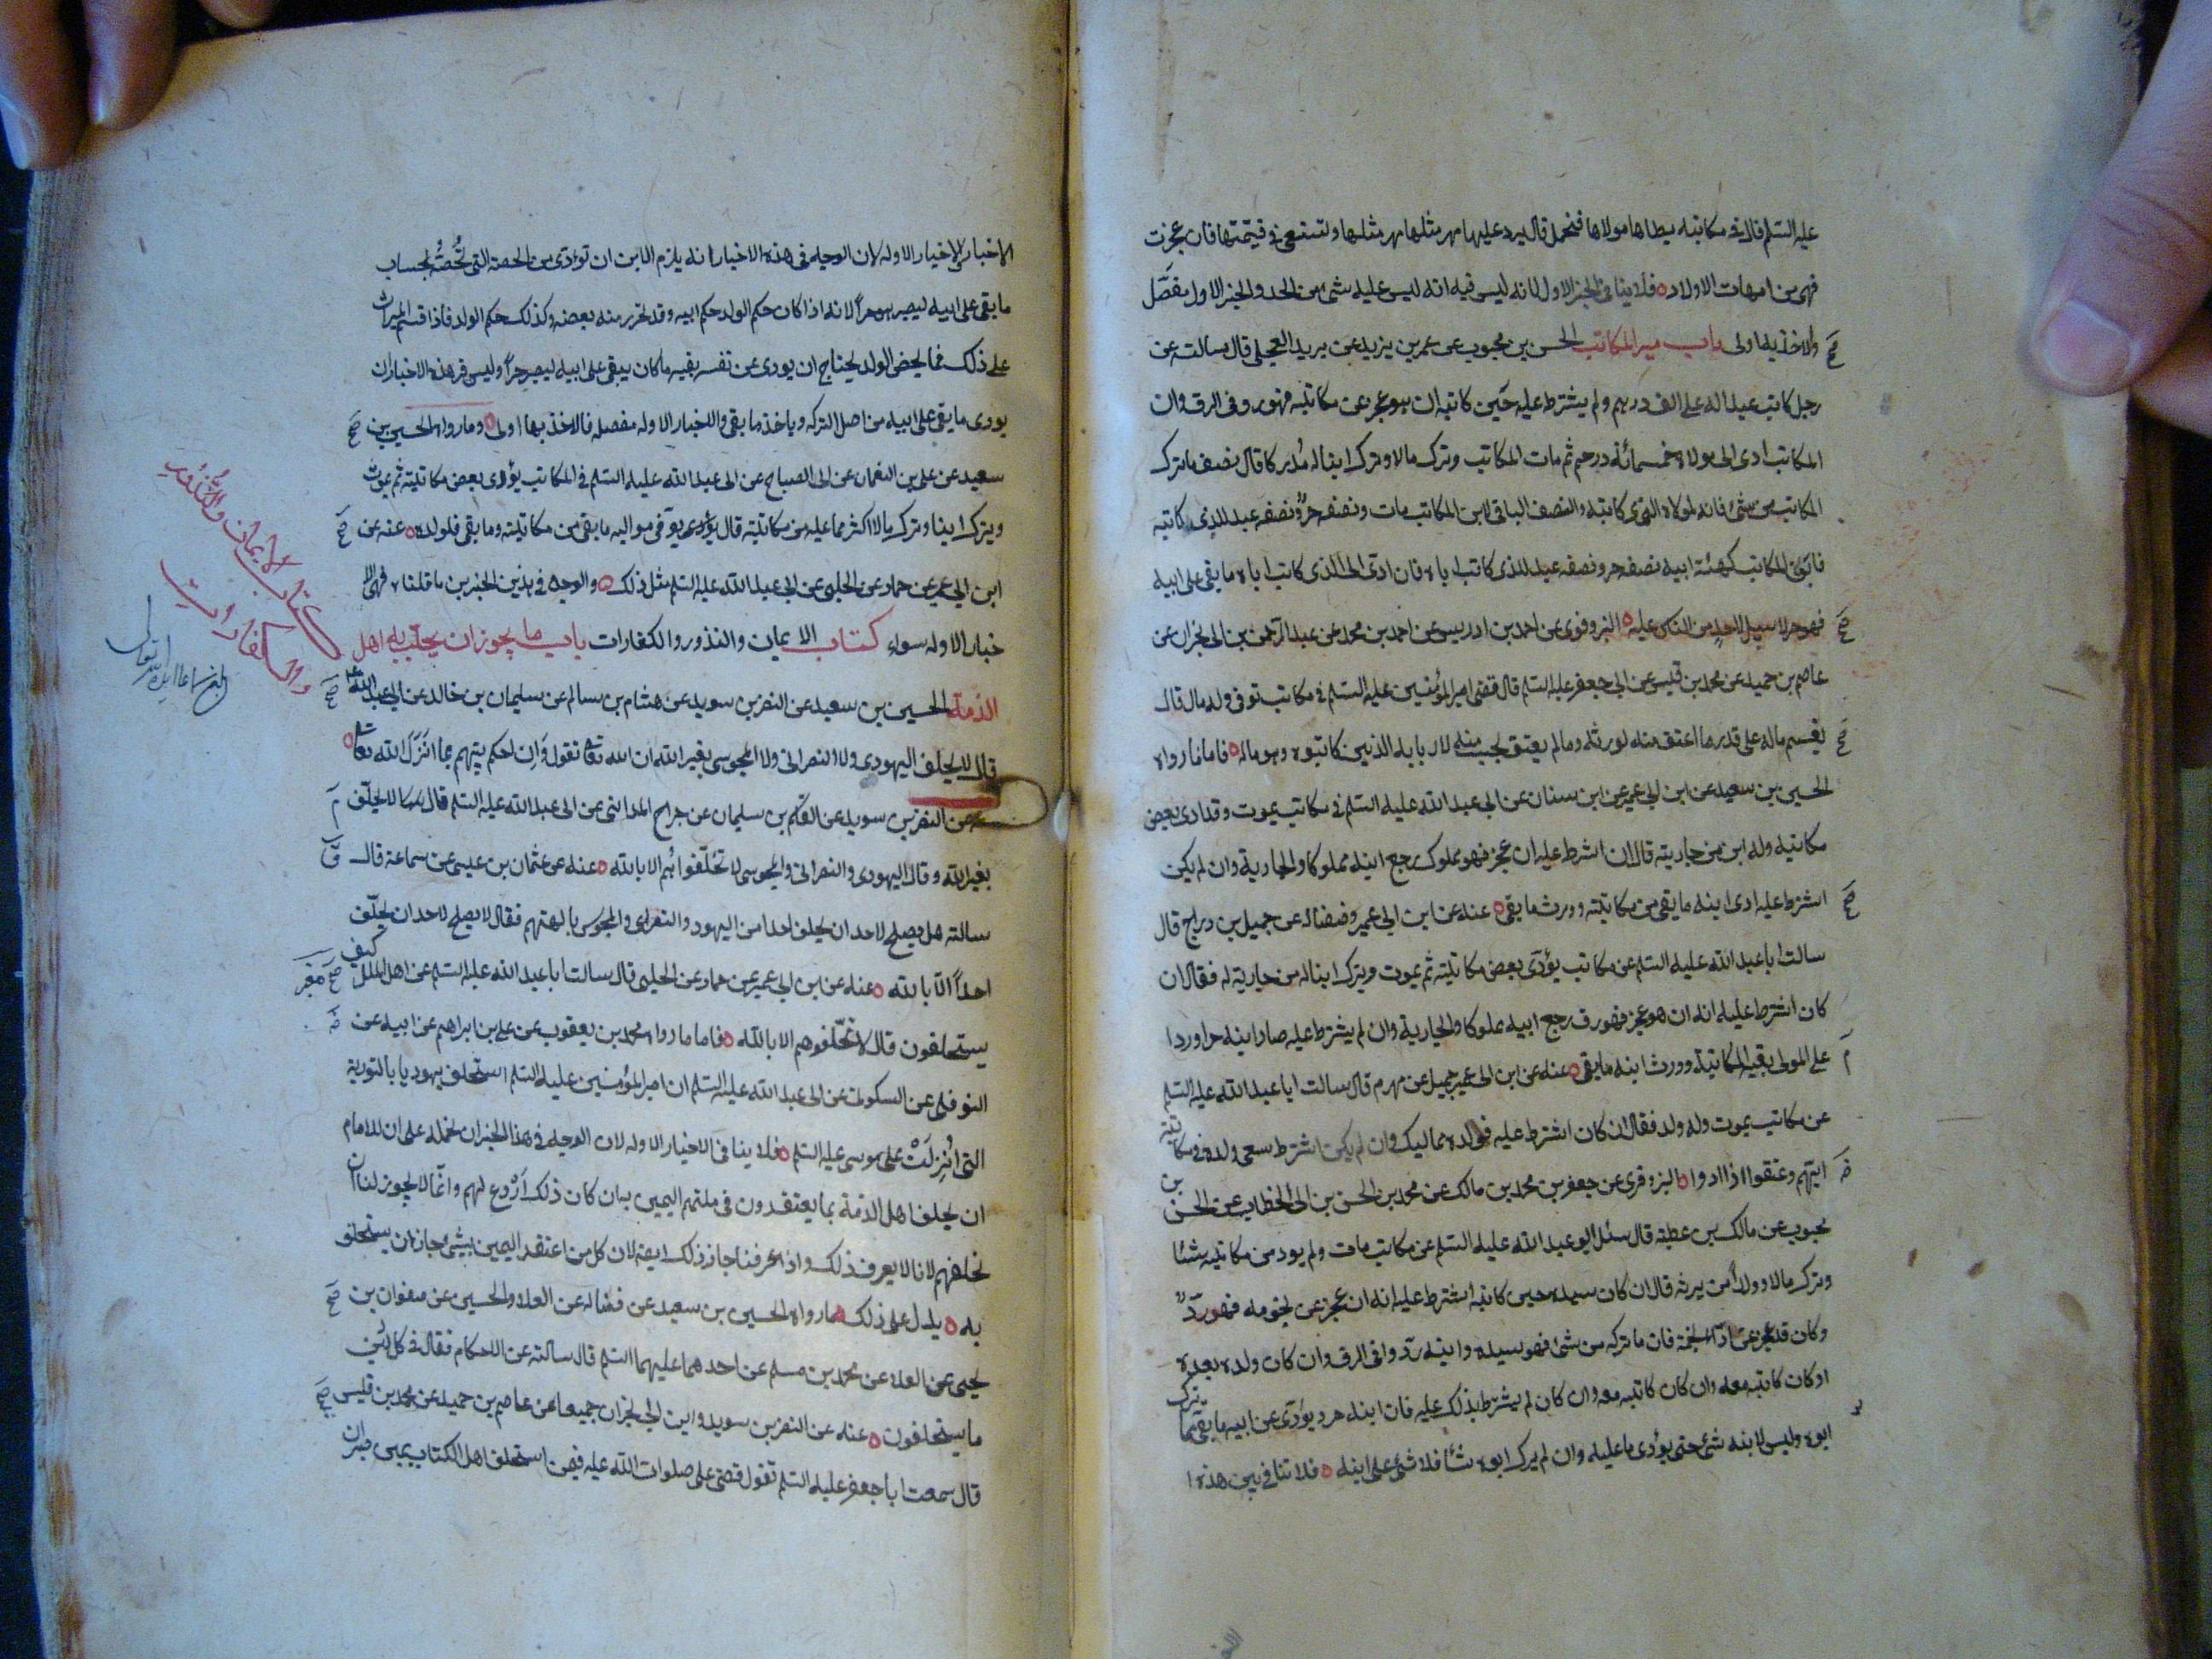 عليه السلم قال في مكاتبه يطاها مولاها فتحمل قال يرد عليها مهر مثلها وتستسعى في قيمتها فان عجزت
فهى من امهات الاولاد فلا ينافى الخبر الاول لانه ليس فيه انه ليس عليه شئ من الحد والخبر الاول مفصّل
والاخذ به اولى باب ميراث المكاتب الحسن بن محبوب عن عمر بن يزيد عن بريد العجلى قال سالته عن
رجل كاتب عبدا له على الف درهم ولم يشترط عليه حين كاتبه ان هو عجز عن مكاتبته فهو رد في الرق وان
المكاتب ادى الى مولاه خمسمائة درهم ثم مات المكاتب وترك مالا وترك ابنا له مُدركا قال نصف ما ترك
المكاتب من شئ فانه لمولاه الذى كاتبه والنصف الباقى لابن المكاتب مات ونصفه حرّ ونصفه عبد للذى كاتبه
فابن المكاتب كهيئة ابيه نصفه حر ونصفه عبد للذى كاتب اباه فان ادّى الى الذى كاتب اباه ما بقى على ابيه
فهو حر لا سبيل لاحدٍ من الناس عليه البزوفرى عن احمد بن ادريس عن احمد بن محمد عن عبد الرحمن بن ابى نجران عن
عاصم بن حميد عن محمد بن قيس عن ابى جعفر عليه السلم قال قضى امير المؤمنين عليه السلم في مكاتب توفى وله مال قال
يقسم ماله على قدر ما اعتق منه لورثته وما لم يعتق يحسب منه لاربابه الذين كاتبوه وهو ماله فاما ما رواه
الحسين بن سعيد عن ابن ابى عمير عن ابن سنان عن ابى عبد الله عليه السلم في مكاتب يموت وقد ادى بعض
مكاتبته وله ابن من جاريته قال ان اشترط عليه ان عجز فهو مملوك رجع ابنه مملوكا والجارية وان لم يكن
اشترط عليه ادى ابنه ما بقى من مكاتبته وورث ما بقى عنه عن ابن ابى عمير وفضاله عن جميل بن دراج قال
سالت ابا عبد الله عليه السلم عن مكاتب يؤدّى بعض مكاتبته ثم يموت ويترك ابنا له من جارية له فقال ان
كان اشترط عليه انه ان هو عجز فهو رق رجع ابنه مملوكا والجارية وان لم يشترط عليه صار ابنه حرا وردا
على المولى بقيه المكاتبة وورث ابنه ما بقى عنه عن ابن ابى عمير جميل عن مهزم قال سالت ابا عبد الله عليه السلم
عن مكاتب يموت وله ولد فقال ان كان اشترط عليه فولده مماليك وان لم يكن اشترط سعى ولده في مكاتبة
ابيهم وعتقوا اذا ادوا البزوفرى عن جعفر بن محمد بن مالك عن محمد بن الحسن بن ابى الخطاب عن الحسن بن
محبوب عن مالك بن عطية قال سئل ابو عبد الله عليه السلم عن مكاتب مات ولم يود من مكاتبته شئا
وترك مالا وولدا من يرثه قال ان كان سيده حين كاتبه اشترط عليه انه ان عجز عن نجومه فهو ردّ
وكان قد عجز عن اداء نجمه فان ما تركه من شئ فهو لسيده وابنه ردّ وافى الرق وان كان ولده بعده
او كان كاتبه معه وان كان كاتبه معه وان كان لم يشترط بذلك عليه فان ابنه حر ويؤدّى عن ابيه ما بقى مما ترك
ابوه وليس لابنه شئ حتى يؤدى ما عليه وان لم يترك ابوه شئا فلا شئ على ابنه فلا تنافى بين هذه ا
الاخبار والاخبار الاوله لان الوجه في هذه الاخبار انه يلزم الابن ان تؤدى من الحصة التى تخصّه بحساب
ما بقى على ابيه ليصير هو حرا لانه اذا كان حكم الولد حكم ابيه وقد تحرر منه بعضه وكذلك حكم الولد فاذا قسم الميراث
على ذلك فما يخص الولد يحتاج ان يودى عن نفسه بقيه ما كان يبقى على ابيه ليصير حراً وليس في هذه الاخبار ان
يودى ما بقى على ابيه من اصل التركه وياخذ ما بقى والاخبار الاوله مفصله فالاخذ بها اولى وما رواه الحسين بن
سعيد عن على بن النعمان عن ابى الصباح عن ابى عبد الله عليه السلم في المكاتب يؤدى بعض مكاتبته ثم يموت
ويترك ابنا وترك مالا اكثر مما عليه من مكاتبته قال يوفى مواليه ما بقى من مكاتبته وما بقى فلولده عنه عن
ابن ابى عمير عن حماد عن الحلبى عن ابى عبد الله عليه السلم مثل ذلك والوجه في هذين الخبرين ما قلناه في الا
خبار الاوله سواء كتاب الايمان والنذور والكفارات باب ما يجوز ان يحلّف به اهل
الذمّة الحسين بن سعيد عن النضر بن سويد عن هشام بن سالم عن سليمان بن خالد عن ابى عبد الله ع
قال لا يحلف اليهودى ولا النصرانى ولا المجوسى بغير الله ان الله تعا يقول وَاَن احكم بينهم بما اَنزَلَ الله تعا
عنه عن النضر بن سويد عن القسم بن سليمان عن جراح المدائنى عن ابى عبد الله عليه السلم قال لا يحلّف
بغير الله وقال اليهودى والنصرانى والمجوسى لا تحلّفوا هُم الا بالله عنه عن عثمان بن عيسى عن سماعة قال
سالته هل يصلح لاحد ان يحلف احدا من اليهود والنصارى والمجوس بالهتهم فقال لا يصلح لاحد ان يحلّف
احداً الّا بالله عنه عن ابن ابى عمير عن حماد عن الحلبى قال سالت ابا عبد الله عليه السلم عن اهل الملل كيف
يستحلفون قال لا تحلّفوهم الا بالله فاما ما رواه محمد بن يعقوب عن على بن ابراهيم عن ابيه عن
النوفلى عن السكونى عن ابى عبد الله عليه السلم ان امير المؤمنين عليه السلم استحلف يهوديا بالتورية
التى اُنزِلَتْ على موسى عليه السلم فلا ينافى الاخبار الاوله لان الوجه في هذا الخبر ان نحمله على ان للامام
ان يحلف اهل الذمة بما يعتقدون في ملتهم اليمين به ان كان ذلك اَرْدع لهم وانّما لا يجوز لنا ان
نحلفهم لانا لا يعرف ذلك واذا عرفنا جاز ذلك ايضا لان كل من اعتقد اليمين بشئ جاز ان يستحلف
به يدل على ذلك ما رواه الحسين بن سعيد عن فضاله عن العلاء والحسين عن صفوان بن
يحيى عن العلا عن محمد بن مسلم عن احدهما عليهما السلم قال سالته عن الاحكام فقال في كل دين
ما يستحلفون عنه عن النضر بن سويد وابن ابى نجران جميعا عن عاصم بن حميد عن محمد بن قيس
قال سمعت ابا جعفر عليه السلم تقول قضى على صلوات الله عليه فيمن استحلف اهل الكتاب بيمين صبر ان
كتاب الايمان والنُّذُور
والكفارات